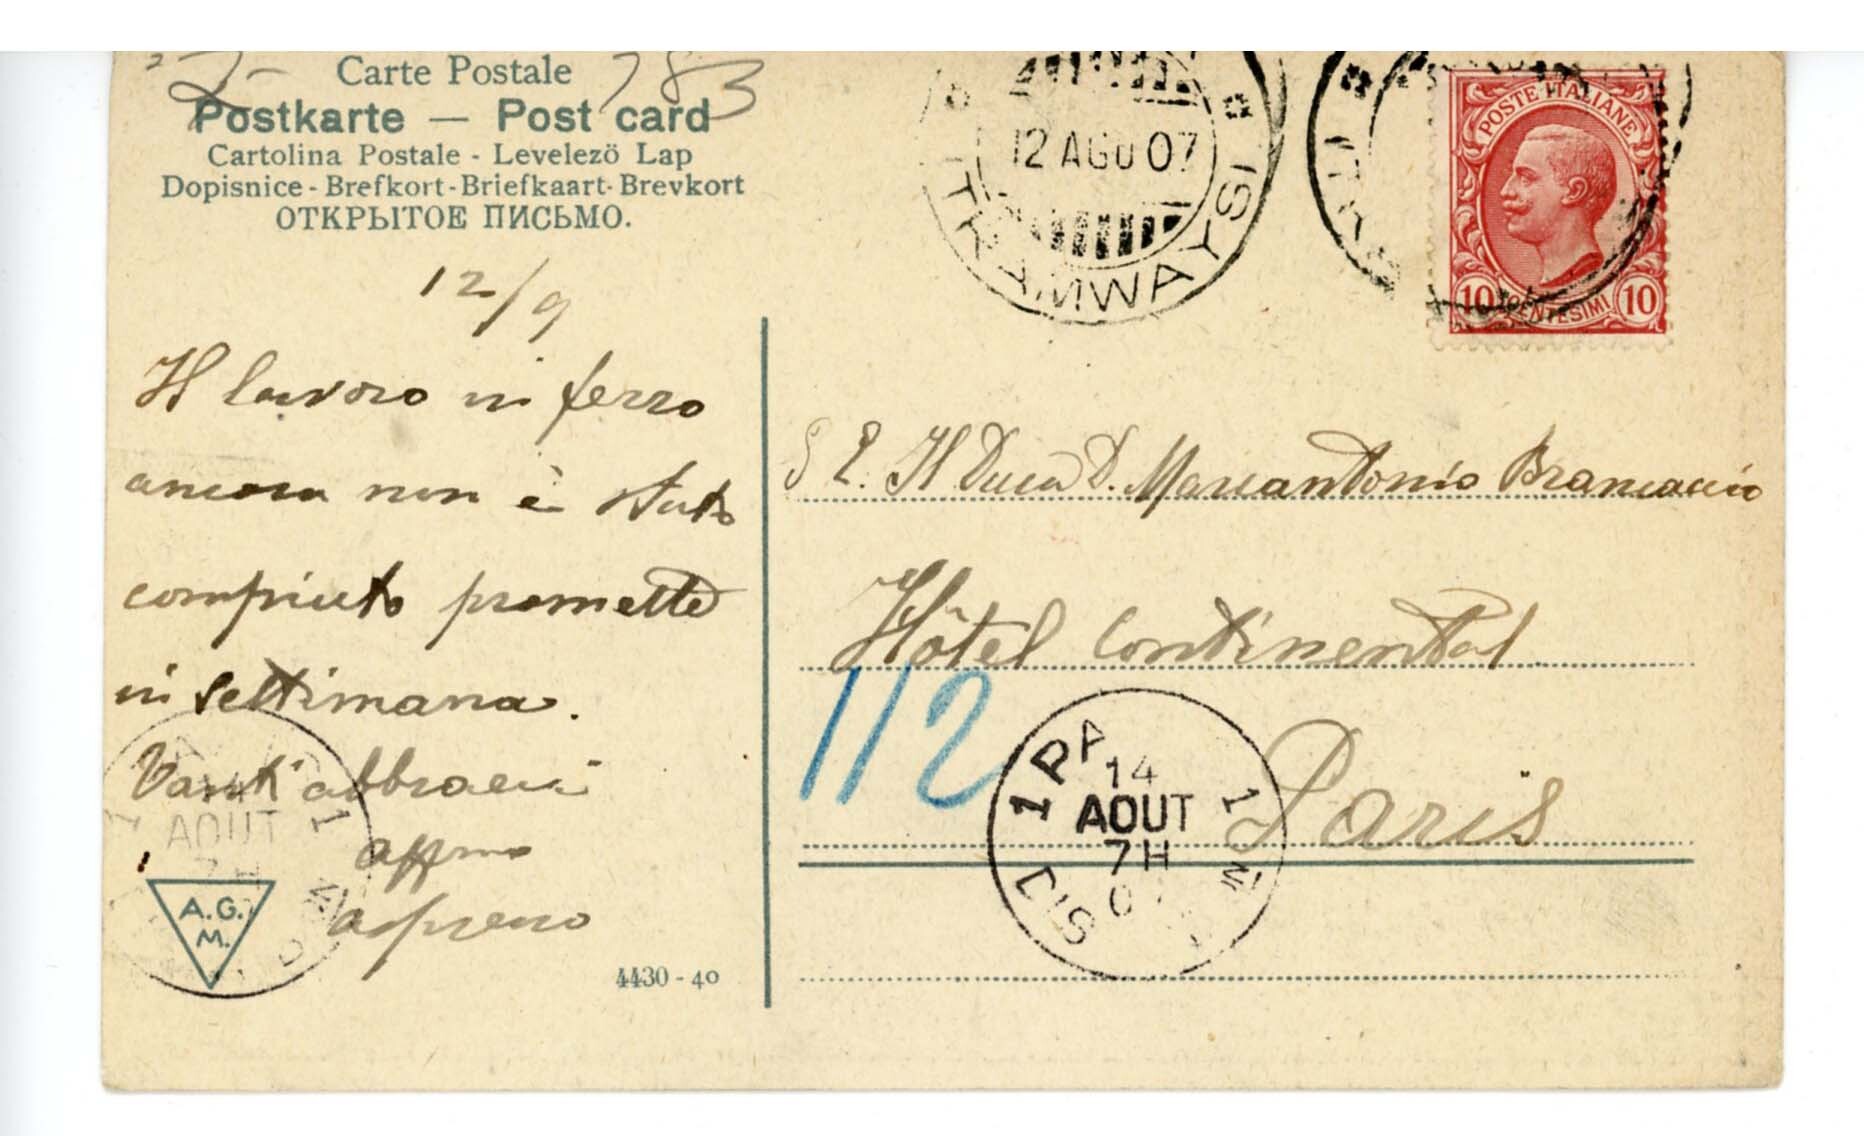 Carte Postale
783
Postkarte — Post card
Cartolina Postale - Levelezö Lap
Dopisnice - Brefkort - Briefkaart - Brevkort
ОТКРЫТОЕ ПИСЬМО.
12/9
Il lavoro in ferro
ancora non è stato
compiuto promette
in settimana.
Tanti abbracci
affmo
Aspreno
A.G.
M.
4430 - 40
12 AGO 07
TRAMWAYS
POSTE ITALIANE
10 CENTESIMI 10
S E. Il Duca D. Marcantonio Brancaccio
Hôtel Continental
112
Paris
14
AOUT
7H
07
AOUT